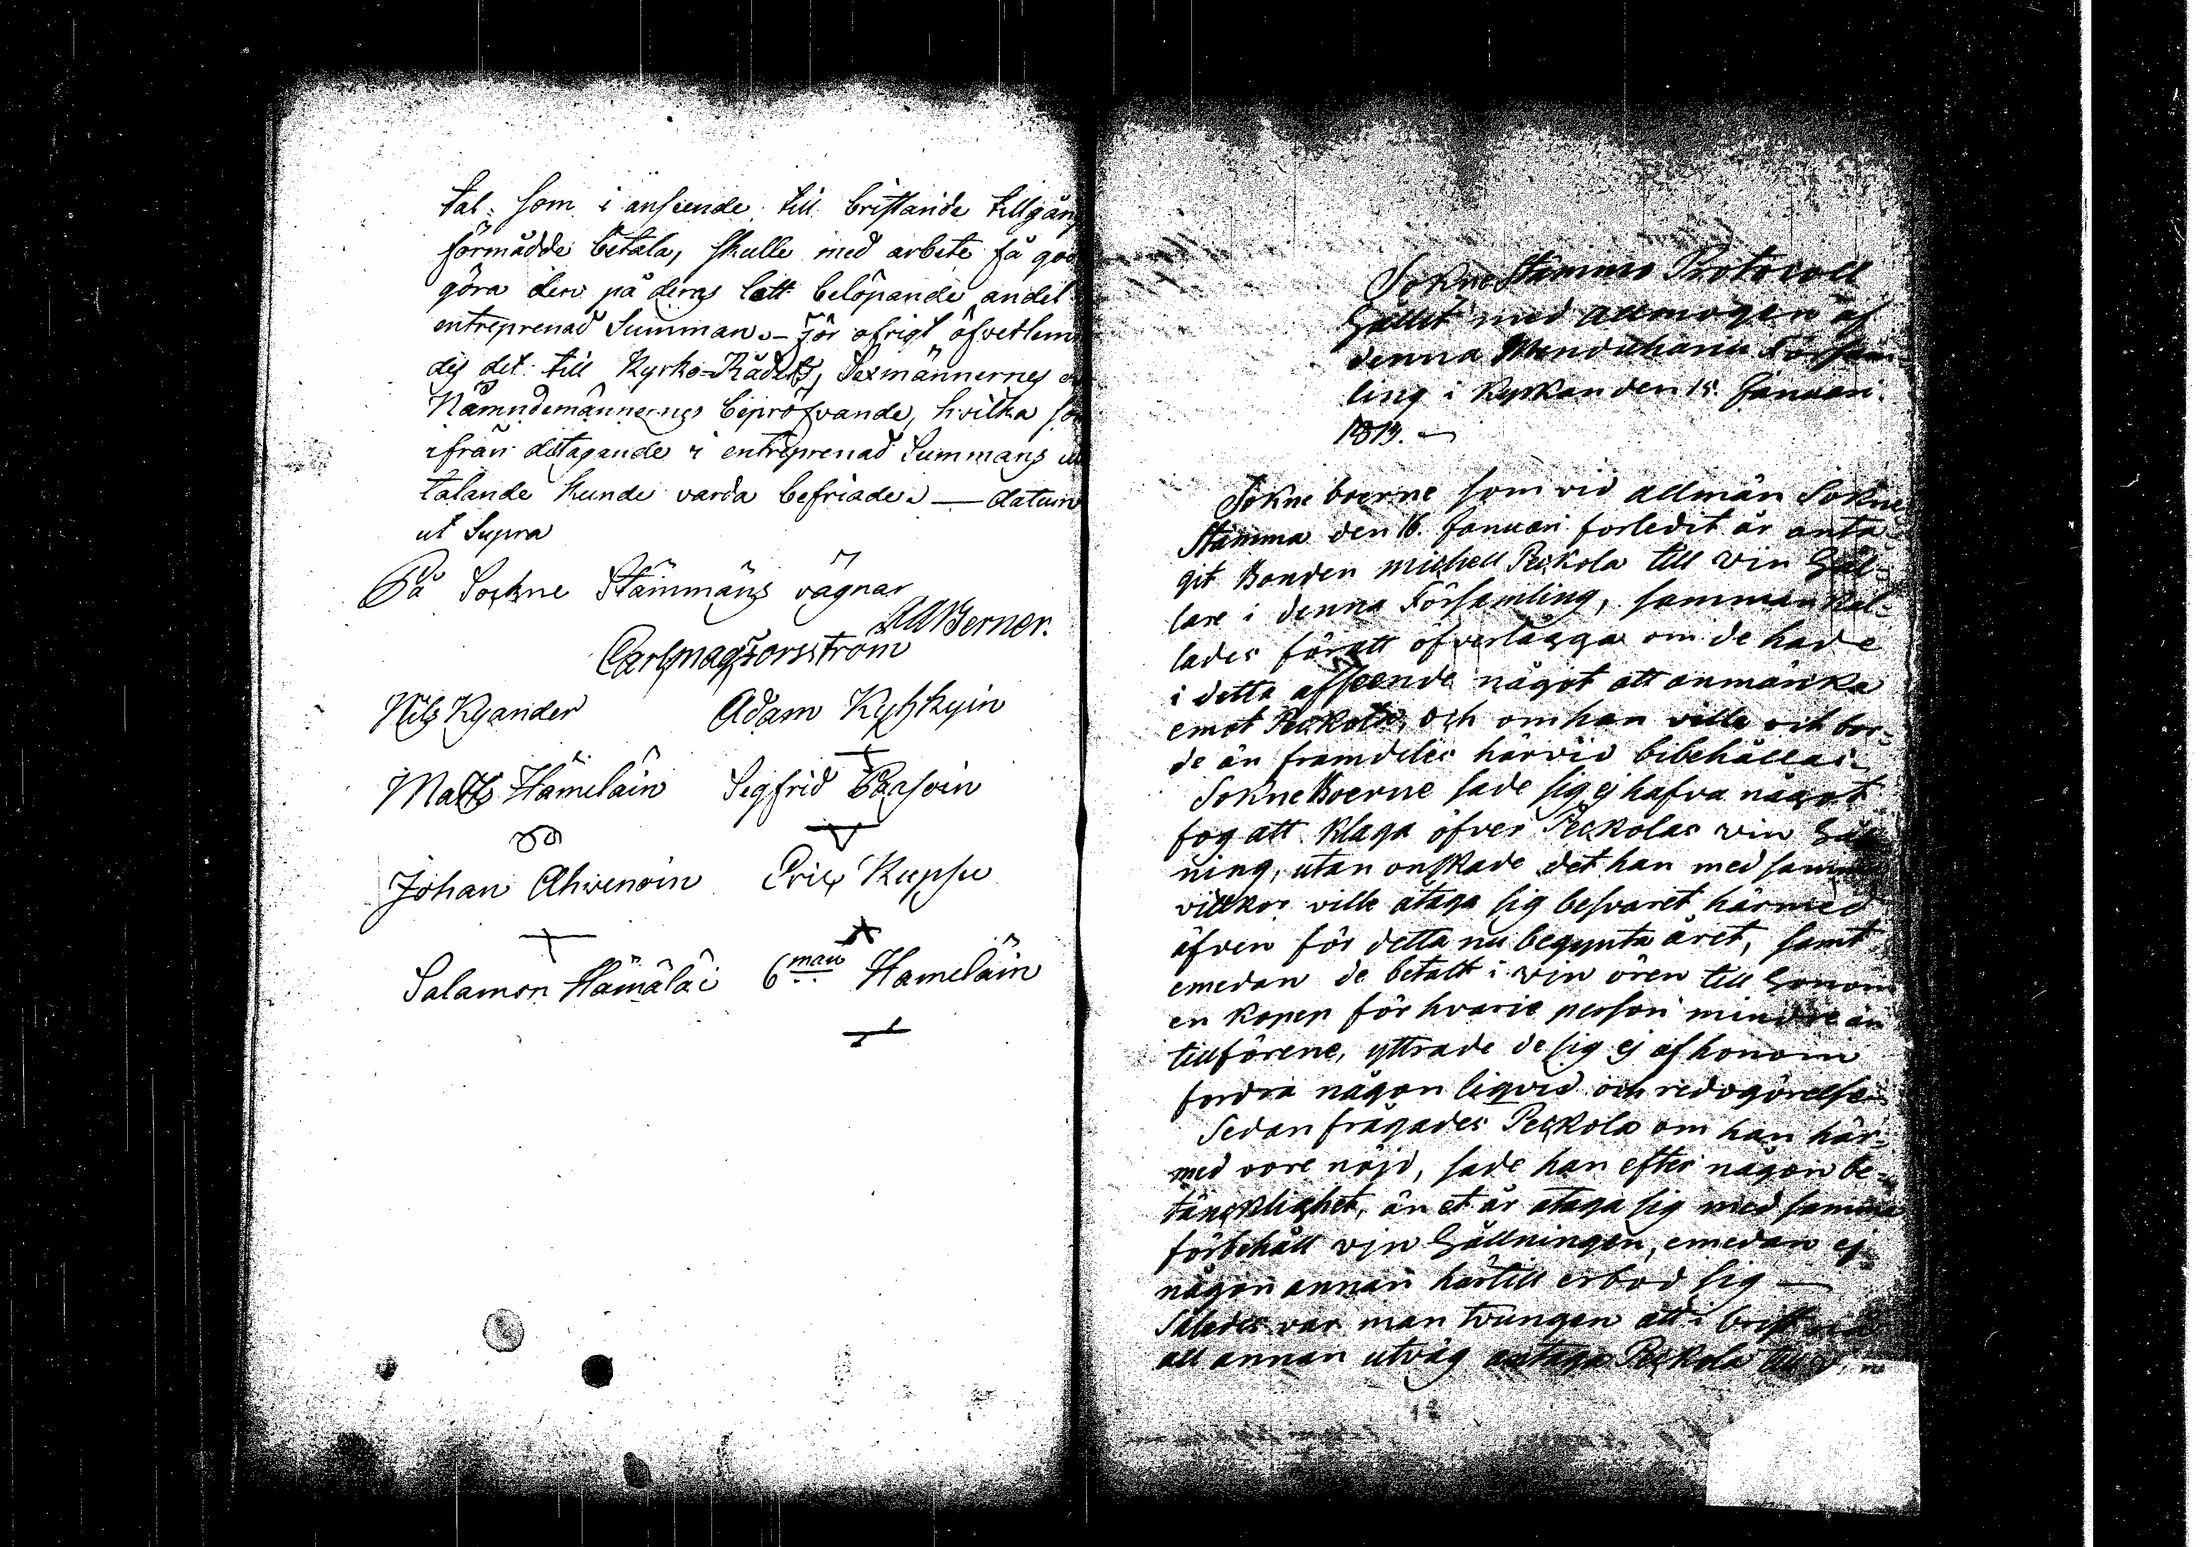 tal. som i anseende till bristande tillgång
förmådde betala, skulle med arbete få god
göra den på deras lott belöpande andel
entreprenad Summan. – För öfrigt öfverlem
des det till Kyrko-Rådets, Sexmännernes
Nämndemännernes bepröfvande, hvilka
ifrån deltagande i entreprenad Summans
talande kunde varda befriade. — datum
ut Supra
På Sockne Stämmans vägnar
Werner.
Carl Mag Forsström
Nils Kyander Adam Kyhkyin
Matts Hämeläin Segfrid
Johan Ahvenoin Eric Kupsu
Salamon Hämäläi 6man Hameläin
Sokne Stämmo Protocoll
hållit med allmogen af
denna Mendueharju Försam-
ling i Kyrkan den 15. Januari.
1819. —
Sokne boerne som vid allmän Sokne
Stämma den 16. Januari forledit år anta-
git Bonden Michell Peckola till vin hål-
lare i denna Församling, sammankal-
lades för att öfverlägga om de hade
i detta afseende något att anmärka
emot Peckola, och om han ville och bor-
de än framdeles härvid bibehållas.
Sokne Boerne sade sig ej hafva något
fog att klaga öfver Peckolas vin håll
ning, utan onskade det han med samma
villkor ville åtaga sig besväret härmed
äfven för detta nu begynta året, samt
emedan de betalt i vin ören till honom
en kopek för hvarie person mindre än
tillförene, yttrade de sig ej af honom
fordra någon liqvid och redogörelse.
Sedan frågades Peckola om han här-
med vore nöjd, sade han efter någon be-
täncklighet, än et år åtaga sig med samma
förbehåll vin hållningen, emedan ej
någon annan härtill erbod sig —
Således var man tvungen att i brist
all annan utväg antaga Peckola till